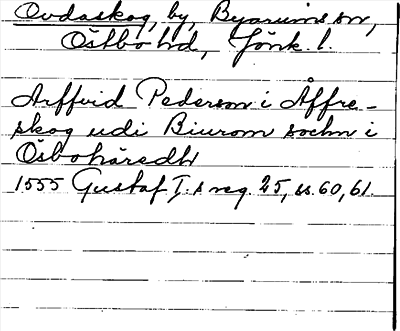 Ovdaskog, by, Byarums sn,
Östbo hd, Jönk. l.
Arffvid Pederson i Åffre-
skog udi Biurom sochn i
Ösbohäredh
1555 Gustaf I:s reg. 25, ss. 60, 61.